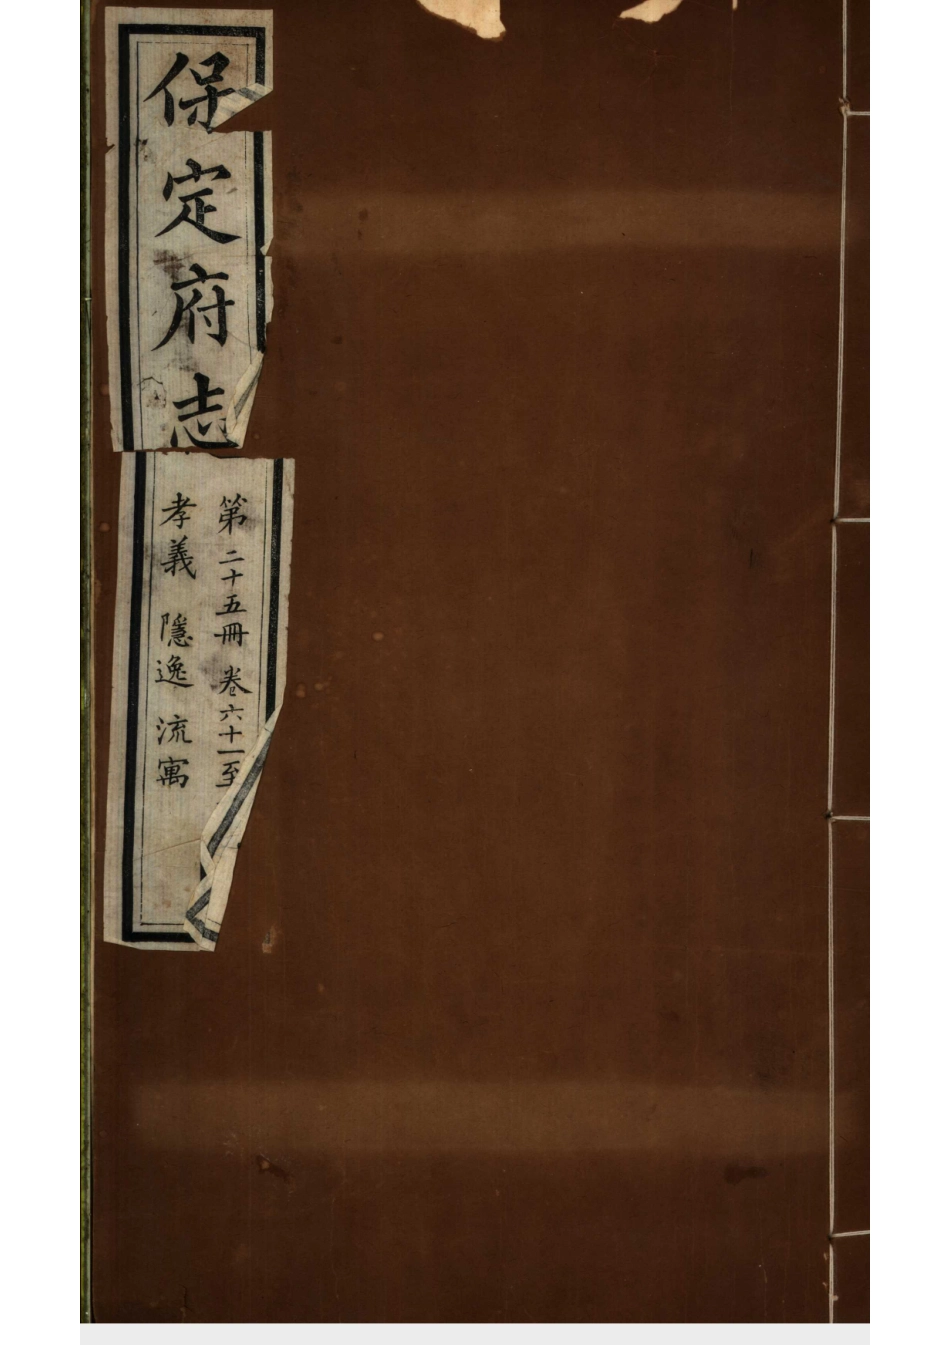 保定府志
第二十五冊 卷六十一至
孝義 隱逸 流寓